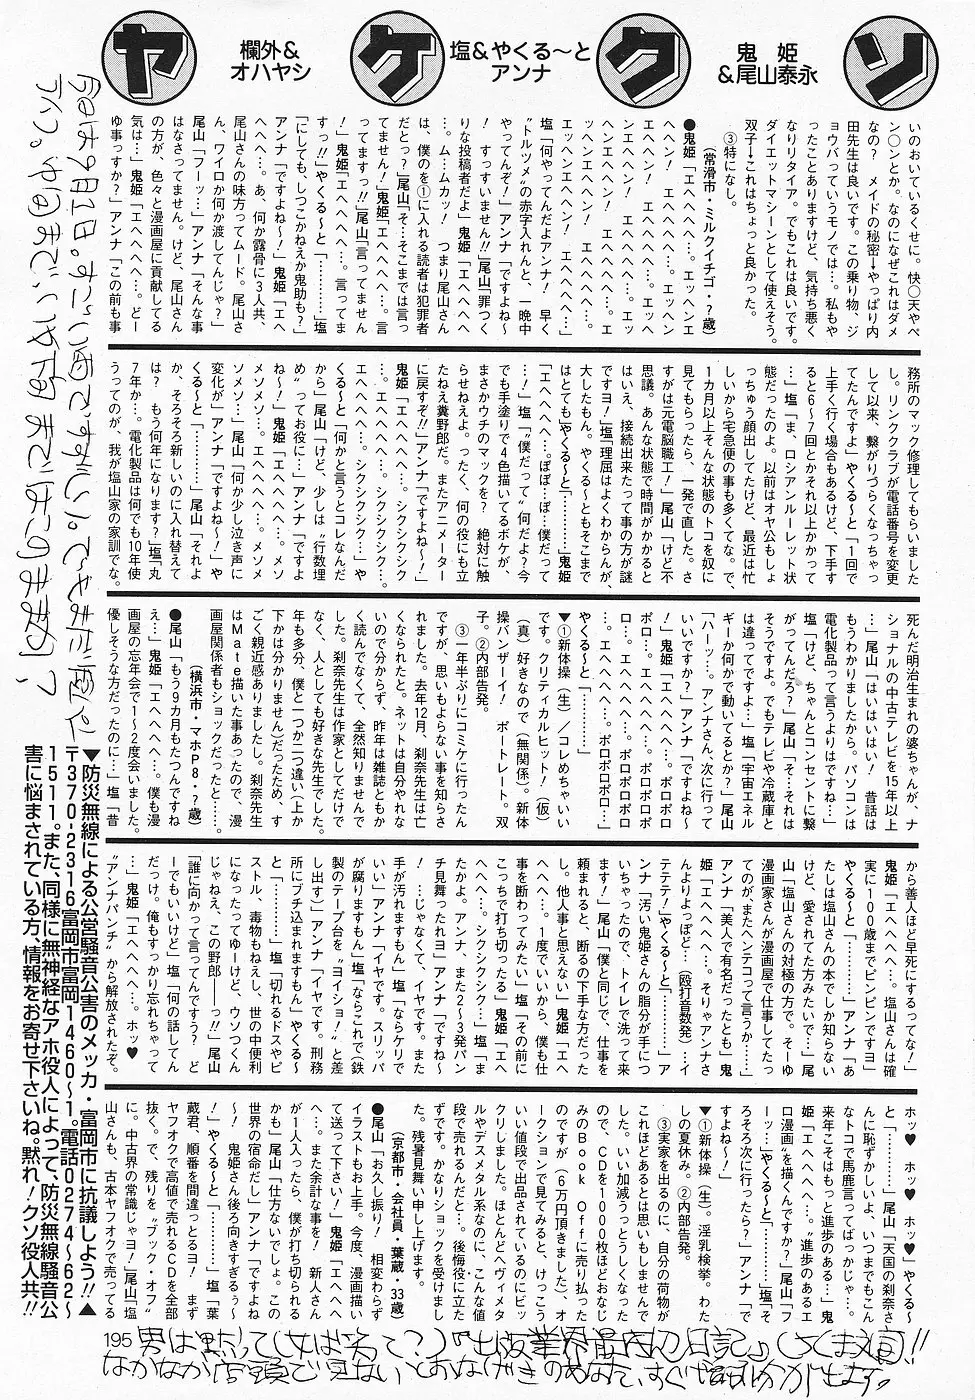 ソ
鬼 姫
&尾山泰永
ク
塩&やくる〜と
アンナ
ケ
欄外&
オハヤシ
ヤ
いのおいているくせに。快〇天やペ
ン〇ンとか。なのになぜこれはダメ
なの? メイドの秘密→やっぱり内
田先生は良いです。この乗り物、ジ
ョウバっていうモノでは…。私もや
ったことありますけど、気持ち悪く
なりリタイア。でもこれは良いです。
ダイエットマシーンとして使えそう。
双子→これはちょっと良かった。
③特になし。
(常滑市・ミルクイチゴ・?歳)
●鬼姫「エヘヘヘヘ…。エッヘンエ
ヘヘン! エヘヘヘヘ…。エッヘン
エヘヘン! エヘヘヘヘ…。エッヘ
ンエヘヘン! エヘヘヘヘ…。エッ
ヘンエヘヘン! エヘヘヘヘ…。エ
エッヘンエヘヘン! エヘヘヘヘ…」
塩「何やってんだよアンナ! 早く
〝トルツメ〟の赤字入れんと、一晩中
やってんぞ!」アンナ「ですよね〜
! すっすいません!!」尾山「罪つく
りな投稿者だよ」鬼姫「エヘヘヘヘ
…。ム…ムカッ! つまり尾山さん
は、僕のを①に入れる読者は犯罪者
だとっ?」尾山「そ…そこまでは言っ
てません!」鬼姫「エヘヘヘヘ…。言
ってますっ!!」尾山「言ってませ
ん!」鬼姫「エヘヘヘヘ…。言ってま
すっ!!」やくる〜と「…………」塩
「にしても、しつこかねえか鬼助も?」
アンナ「ですよね〜!」鬼姫「エヘ
ヘヘヘ…。あ、何か露骨に3人共、
尾山さんの味方ってムード。尾山さ
ん、ワイロか何か渡してんでしょ?」
尾山「フーッ…」アンナ「そんな事
はなさってません。けど、尾山さん
の方が、色々と漫画屋に貢献してる
気は…」鬼姫「エヘヘヘヘ…。どー
ゆ事っすか?」アンナ「この前も事
務所のマック修理してもらいました
し。リンククラブが電話番号を変更
して以来、繋がりづらくなっちゃっ
てたんですよ」やくるると「1回で
上手く行く場合もあるけど、下手す
ると6〜7回とかそれ以上かかって
…」塩「ま、ロシアンルーレット状
態だったのよ。以前はオヤ公もしょ
っちゅう顔出してたけど、最近は忙
しいから宅急便の事も多くてな。で、
1カ月以上そんな状態のトコを奴に
見てもらったら、一発で直した。さ
すがは元電脳職工!」尾山「けど不
思議。あんな状態で時間がかかると
はいえ、接続出来たって事の方が謎
ですヨ!」塩「理屈はよくわからんが、
大したもんだ。やくる〜ともそこまで
はとても」やくる〜と「…………」鬼姫
「エヘヘヘヘ…。ぽぽ…ぽ…僕だって
…」塩「〝僕だって〟何だよ? 今
でも手塗りで4色描いてるボケが、
まさかウチのマックを? 絶対に触
らせねえよ。ったく、何の役にも立
たねえ糞野郎だ。またアニメーター
に戻すぞ!!」アンナ「ですよね〜!」
鬼姫「エヘヘヘヘ…。シクシクシク
…。エヘヘヘヘ…。シクシクシク…。
エヘヘヘヘ…。シクシクシク…」や
くると「何かと言うとコレなんだ
から」尾山「けど、少しは〝行数埋
め〟ってお役に…」アンナ「ですよ
ね〜!」鬼姫「エヘヘヘヘ…。メソ
メソメソ…。エヘヘヘヘ…。メソメ
ソメソ…」尾山「何か少し泣き声に
変化が」アンナ「ですよね〜!」や
くる〜と「…………」尾山「それよ
か、そろそろ新しいのに入れ替えて
は? もう何年になります?」塩「丸
7年か…。電化製品は何でも10年使
うってのが、我が塩山家の家訓でな。
死んだ明治生まれの婆ちゃんが、ナ
ショナルの中古テレビを15年以上
…」尾山「はいはいはい! 昔話は
もうわかりましたから。パソコンは
電化製品って言うよりはですね…」
塩「けど、ちゃんとコンセントに繋
がってんだろ?」尾山「そ…それは
そうですよ。でもテレビや冷蔵庫と
は違ってですよ…」塩「宇宙エネル
ギーか何かで動いてるとか?」尾山
「ハーッ…。アンナさん次に行って
いいですか?」アンナ「ですよね〜
!」鬼姫「エヘヘヘヘ…。ポロポロ
ポロ…。エヘヘヘヘ…。ポロポロポ
ロ…。エヘヘヘヘ…。ポロポロポロ
…。エヘヘヘヘ…。ポロポロポロ…」
やくる〜と「…………」
▼①新体操(生)/コレめちゃいい
です。クリティカルヒット!(仮)
(真)好きなので(無関係)。新体
操バンザーイ! ポートレート。双
子。②内部告発。
③一年半ぶりにコミケに行ったん
ですが、思いもよらない事を知らさ
れました。去年12月、刹奈先生は亡
くなられたと。ネットは自分やれな
いので分からず、昨年は雑誌ともか
く読んでなくて、全然知りませんで
した。刹奈先生は作家としてだけで
なく、人としても好きな先生でした。
年も多分、僕と一つか二つ違い(上か
下かは分かりません)だったため、す
ごく親近感ありましたし。刹奈先生
はMate描いた事あったので、漫
画屋関係者もショックだったと…。
(横浜市・マホP8・?歳)
●尾山「もう9カ月もたつんですね
え…」鬼姫「エヘヘヘヘ…。僕も漫
画屋の忘年会で1〜2度会いました。
優しそうな方だったのに…」塩「昔
から善人ほど早死にするってな!」
鬼姫「エヘヘヘヘ…。塩山さんは確
実に100歳までピンピンですヨ」
やくる〜と「…………」アンナ「あ
たしは塩山さんの本でしか知らない
けど、愛されてた方みたいで…」尾
山「塩山さんの対極の方で。そーゆ
漫画家さんが漫画屋で仕事してたっ
てのが、またヘンテコって言うか…」
アンナ「美人で有名だったとも」鬼
姫「エヘヘヘヘ…。そりゃアンナさ
んよりよっぽど…(殴打音数発)…イ
テテテ!」やくる〜と「…………」ア
ンナ「汚い鬼姫さんの脂分が手につ
いちゃったので、トイレで洗って来
ます!」尾山「僕と同じで、仕事を
頼まれると、断るの下手な方だった
し。他人事と思えない」鬼姫「エヘ
ヘヘヘ…。1度でいいから、僕も仕
事を断わってみたい」塩「その前に
こっちで打ち切ったる」鬼姫「エヘ
ヘヘヘ…。シクシクシク…」塩「ま
たかよ。アンナ、また2〜3発パン
チ見舞ったれヨ」アンナ「ですね〜
! …じゃなくて、イヤです。また
手が汚れますもん」塩「ならケリで
いい」アンナ「イヤです。スリッパ
が腐りますもん」塩「ならこれで(鉄
製のテープ台を〝ヨイショ!〟と差
し出す)」アンナ「イヤです。刑務
所にブチ込まれますもん」やくる〜
と「…………」塩「切れるドスやピ
ストル、毒物もねえし、世の中便利
になったってゆーけど、ウソつくん
じゃねえ、この野郎――っ!!」尾山
「誰に向かって言ってんですう?」塩
「でもいいけど」塩「何の話してん
だっけ。俺もすっかり忘れちゃって
…」鬼姫「エヘヘヘヘ…。ホッ♥
〝アンナパンチ〟から解放されたぞ。
ホッ♥ ホッ♥ ホッ♥」やくる〜
と「…………」尾山「天国の刹奈さ
んに恥ずかしいよ、いつまでもこん
なトコで馬鹿言ってばっかじゃ…。
来年こそはもっと進歩のある…」鬼
姫「エヘヘヘヘ…。〝進歩のあるエ
口漫画〟を描くんですか?」尾山「フ
ーッ…」やくると「…………」塩「そ
ろそろ次に行ったら?」アンナ「で
すよね〜!」
▼①新体操(生)。淫乳検挙。わた
しの夏休み。②内部告発。
③実家を出るのに、自分の荷物が
これほどあるとは思いもしませんで
した。いい加減うっとうしくなった
ので、CDを1000枚ほどおなじ
みのBook Offに売り払った
のですが(6万円頂きました)、オ
ークションで見てみると、けっこう
いい値段で出品されているのにビッ
クリしました。ほとんどヘヴィメタ
ルやデスメタル系なのに、こんな値
段で売れるんだと…。後悔役に立た
ずです。かなりショックを受けまし
た。残暑見舞い申し上げます。
(京都市・会社員・葉蔵・33歳)
●尾山「お久し振り! 相変わらず
イラストもお上手。今度、漫画描い
て送って下さい!」鬼姫「エヘヘヘ
ヘ…。また余計な事を! 新人さん
が1人入ったら、僕が打ち切られる
かも」尾山「仕方ないでしょ。この
世界の宿命だし」アンナ「ですよね
〜! 鬼姫さん後ろ向きすぎるぅ〜
!」やくる〜と「…………」塩「葉
蔵君、順番を間違っとるヨ! まず
ヤフオクで高値で売れるCDを全部
抜く。で、残りを〝ブック・オフ〟
に。中古界の常識じゃヨ!」尾山「塩
山さんも、古本ヤフオクで売ってる
▼防災無線による公営騒音公害のメッカ・富岡市に抗議しよう!!▲
〒370-2316富岡市富岡1460〜1。電話0274〜62〜
1511。また、同様に無神経なアホ役人によって、防災無線騒音公
害に悩まされている方、情報をお寄せ下さいね。黙れ!クソ役人共!!
今日は9月1日。すごい雨ですずしい。でもまだ暑い
195
男は黙って(女は笑って?)『出版業界最底辺日記』(ちくま文庫)!!
なかなか店頭で見ないとおなげきのあなた、すぐや